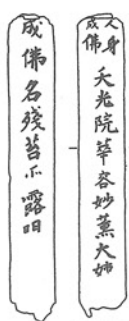 人身
成佛 天光院華容妙薫大姉
成佛名残苔爪露呾